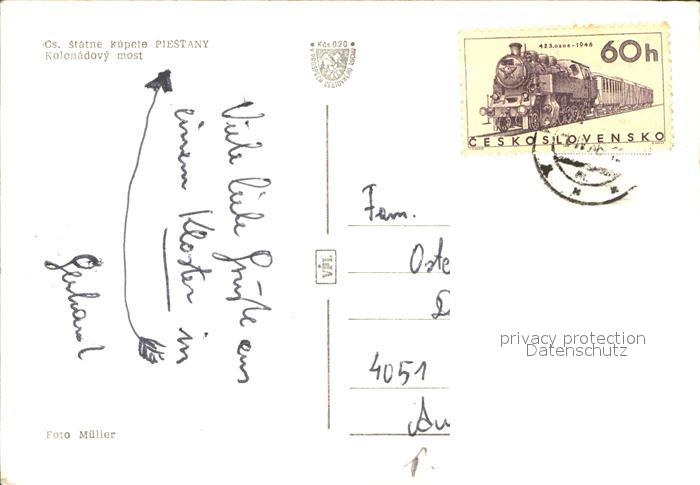 Čs. štátne kúpele PIEŠŤANY
Kolonádový most
Kčs 0,20
423.0206-1946
60h
ČESKOSLOVENSKO
Viele liebe Grüße aus
einem Kloster in
Gerhard
Fam.
Oste
D
VPL
4051
privacy protection
Datenschutz
Foto Müller